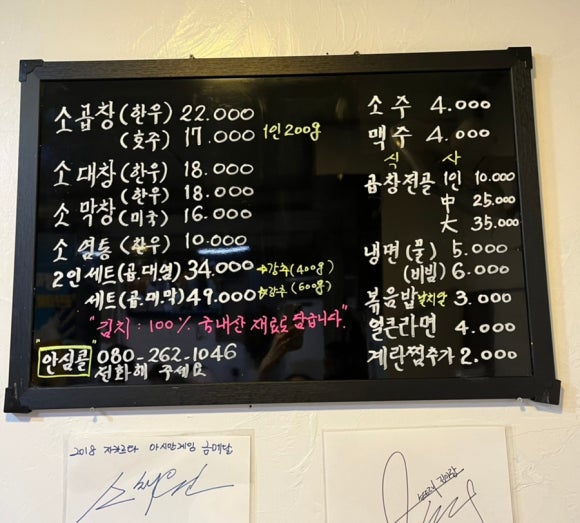 소곱창(한우) 22.000
(호주) 17.000 1인 200g
소 대창(한우) 18.000
(한우) 18.000
소 막창(미국) 16.000
소 염통 (한우) 10.000
2인 세트(곱.대.염) 34.000 (400g)
세트(곱.대.막) 49.000 (600g)
"김치 : 100% 국내산 재료로 담급니다"
"안심콜" 080-262.1046
전화해 주세요
소주 4.000
맥주 4.000
식 사
곱창전골 1인 10.000
中 25.000
大 35.000
냉면(물) 5.000
(비빔) 6.000
볶음밥 날치알 3.000
얼큰라면 4.000
계란찜추가 2.000
2018 자카르타 아시안게임 금메달